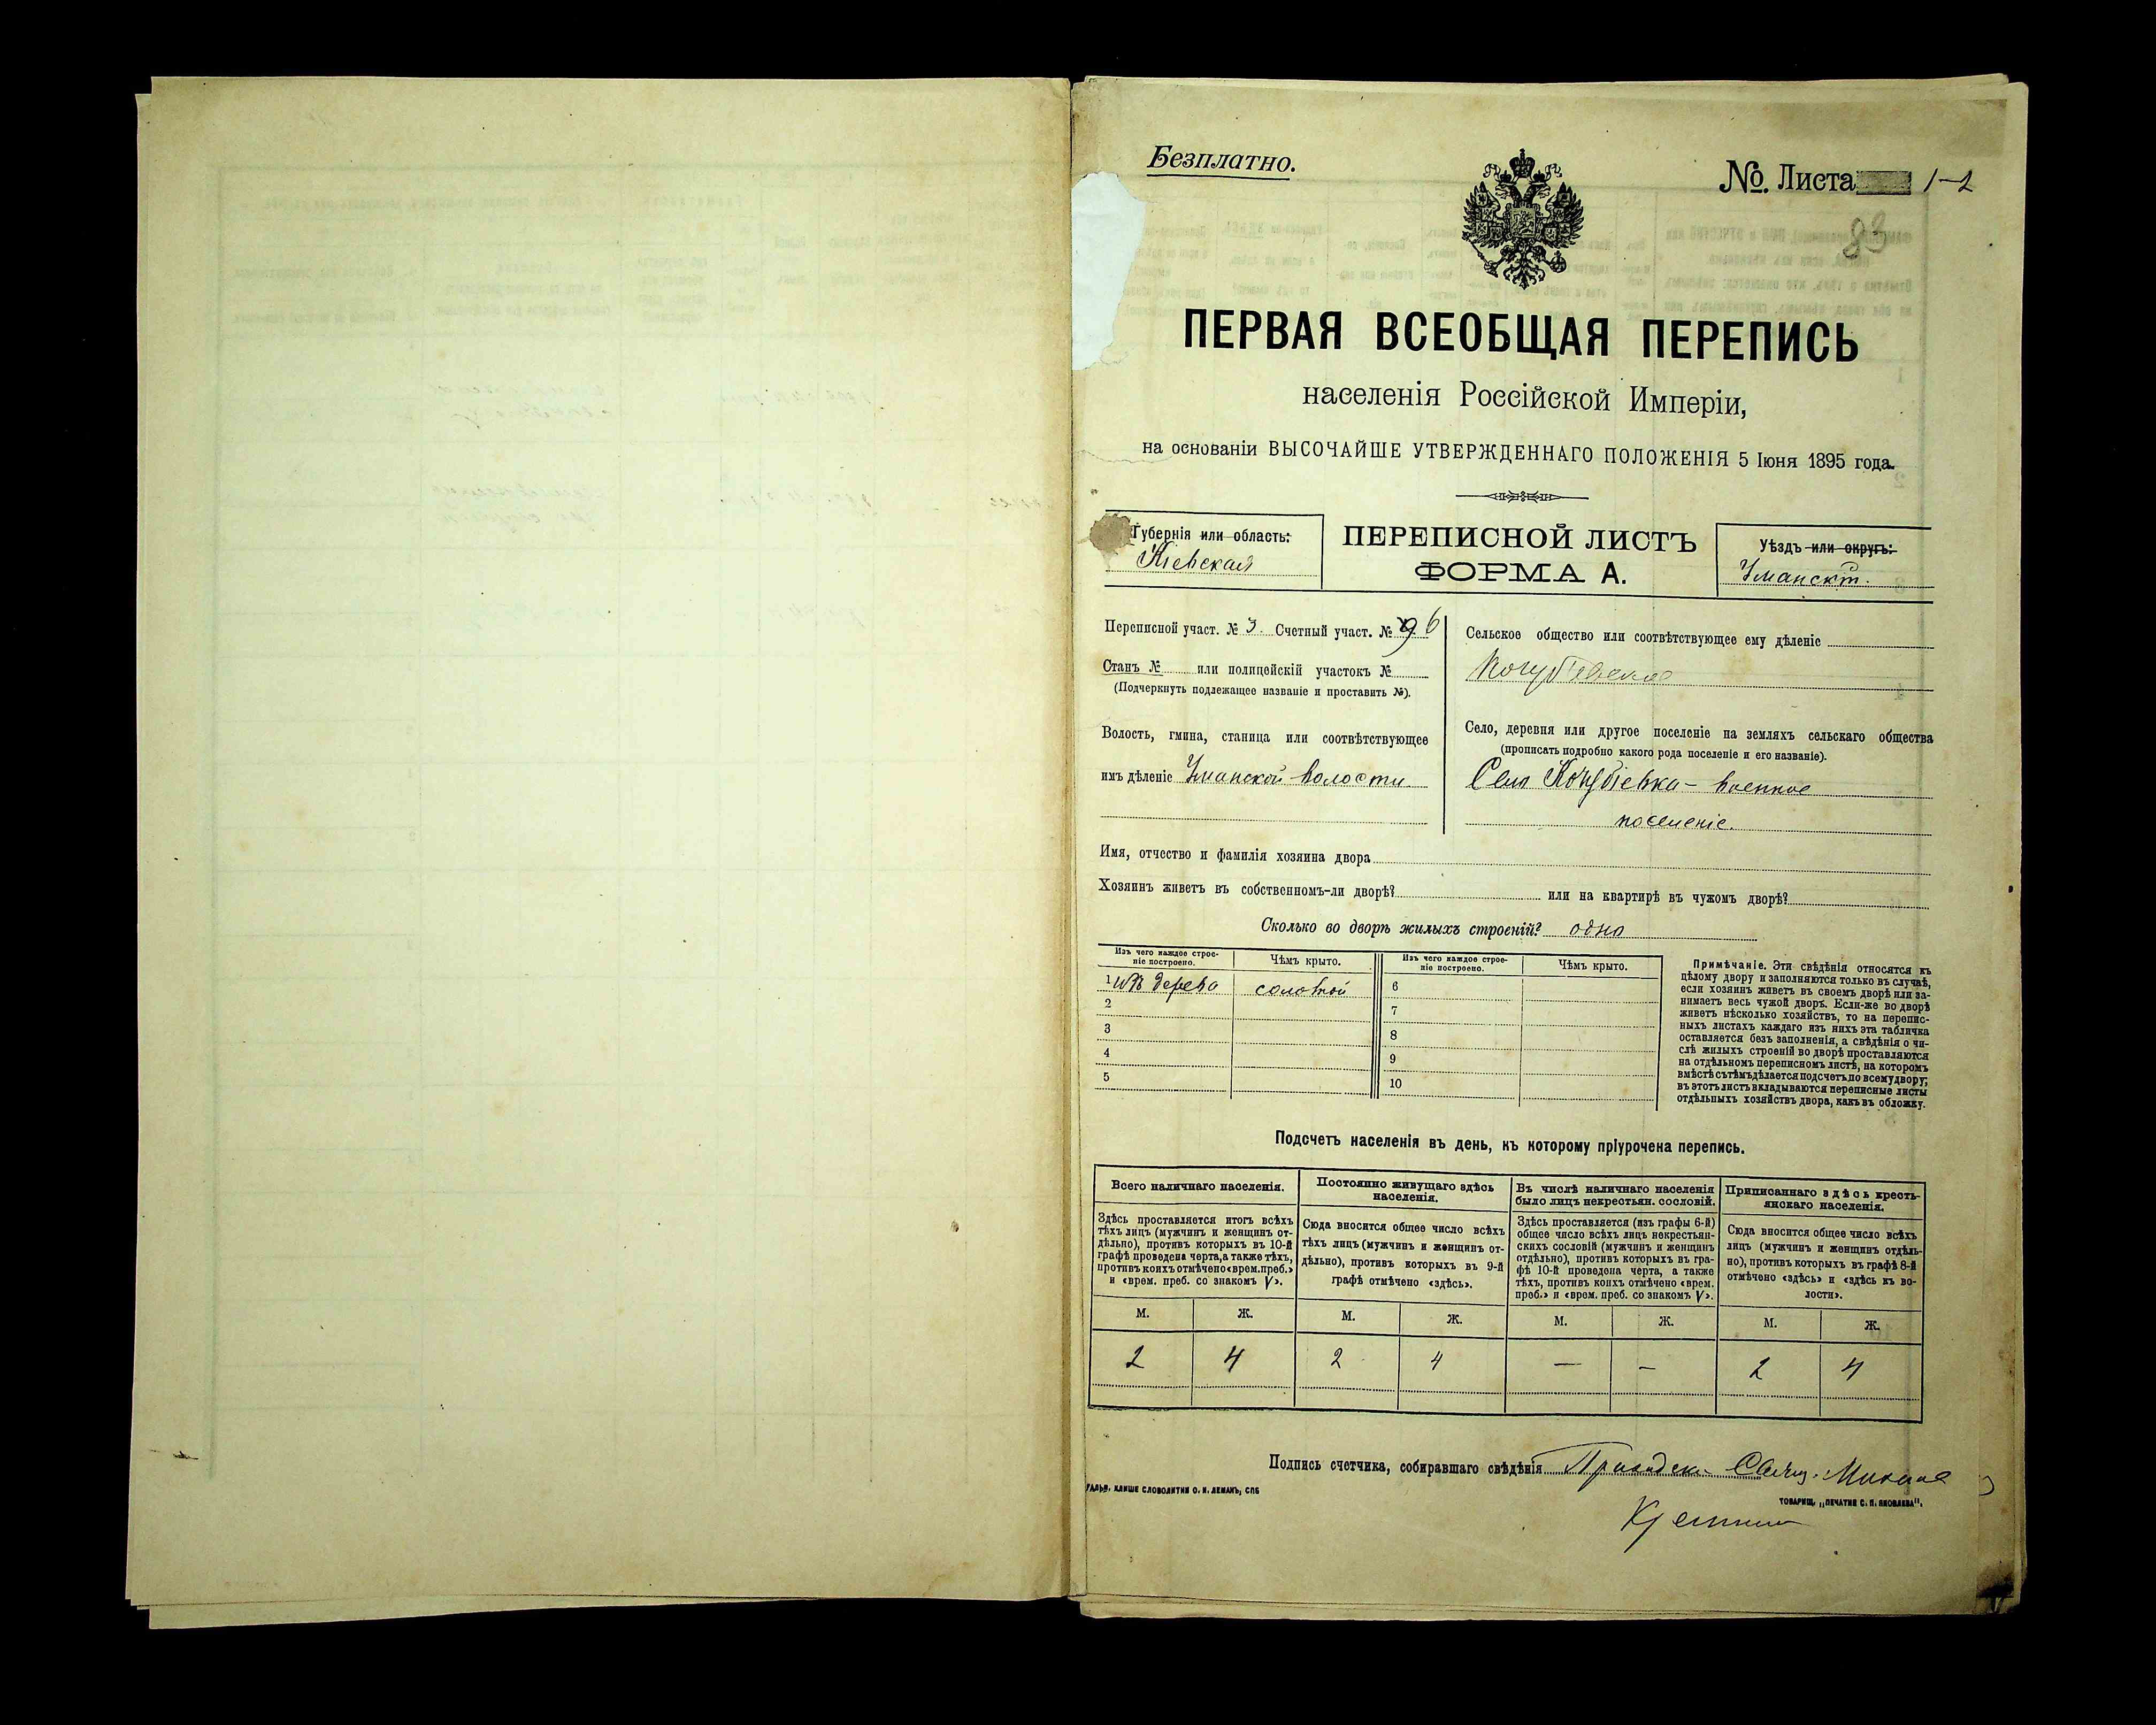 Безплатно.
№. Листа 1-2
83
ПЕРВАЯ ВСЕОБЩАЯ ПЕРЕПИСЬ
населенія Россійской Имперіи,
на основаніи ВЫСОЧАЙШЕ УТВЕРЖДЕННАГО ПОЛОЖЕНІЯ 5 Іюня 1895 года.
Губернія или область:
Кіевская
ПЕРЕПИСНОЙ ЛИСТЪ
ФОРМА А.
Уѣздъ или округъ:
Уманскій.
Переписной участ. № 3. Счетный участ. № 6
Станъ № или полицейскій участокъ №
(Подчеркнуть подлежащее названіе и проставить №).
Волость, гмина, станица или соотвѣтствующее
имъ дѣленіе Уманской волости
Сельское общество или соотвѣтствующее ему дѣленіе
Село, деревня или другое поселеніе на земляхъ сельскаго общества
(прописать подробно какого рода поселеніе и его названіе).
Село Кочубіевка - военное
поселеніе.
Имя, отчество и фамилія хозяина двора
Хозяинъ живетъ въ собственномъ-ли дворѣ? или на квартирѣ въ чужомъ дворѣ?
Сколько во дворѣ жилыхъ строеній? одно
Изъ чего каждое строе-
ніе построено.
Чѣмъ крыто.
Изъ чего каждое строе-
ніе построено.
Чѣмъ крыто.
1 изъ дерева соломой 6
2 7
3 8
4 9
5 10
Примѣчаніе. Эти свѣдѣнія относятся къ
цѣлому двору и заполняются только въ случаѣ,
если хозяинъ живетъ въ своемъ дворѣ или за-
нимаетъ весь чужой дворъ. Если-же во дворѣ
живетъ нѣсколько хозяйствъ, то на перепис-
ныхъ листахъ каждаго изъ нихъ эта табличка
оставляется безъ заполненія, а свѣдѣнія о чи-
слѣ жилыхъ строеній во дворѣ проставляются
на отдѣльномъ переписномъ листѣ, на которомъ
вмѣстѣ съ тѣмъ дѣлается подсчетъ по всему двору;
въ этотъ листъ вкладываются переписные листы
отдѣльныхъ хозяйствъ двора, какъ въ обложку.
Подсчетъ населенія въ день, къ которому пріурочена перепись.
Всего наличнаго населенія.
Здѣсь проставляется итогъ всѣхъ
тѣхъ лицъ (мужчинъ и женщинъ от-
дѣльно), противъ которыхъ въ 10-й
графѣ проведена черта, а также тѣхъ,
противъ коихъ отмѣчено «врем. преб.»
и «врем. преб. со знакомъ V».
Постоянно живущаго здѣсь
населенія.
Сюда вносится общее число всѣхъ
тѣхъ лицъ (мужчинъ и женщинъ от-
дѣльно), противъ которыхъ въ 9-й
графѣ отмѣчено «здѣсь».
Въ числѣ наличнаго населенія
было лицъ некрестьян. сословій.
Здѣсь проставляется (изъ графы 6-й)
общее число всѣхъ лицъ некрестьян-
скихъ сословій (мужчинъ и женщинъ
отдѣльно), противъ которыхъ въ гра-
фѣ 10-й проведена черта, а также
тѣхъ, противъ коихъ отмѣчено «врем.
преб.» и «врем. преб. со знакомъ V».
Приписаннаго здѣсь кресть-
янскаго населенія.
Сюда вносится общее число всѣхъ
лицъ (мужчинъ и женщинъ отдѣль-
но), противъ которыхъ въ графѣ 8-й
отмѣчено «здѣсь» и «здѣсь къ во-
лости».
М. Ж. М. Ж. М. Ж. М. Ж.
2 4 2 4 — — 2 4
Подпись счетчика, собиравшаго свѣдѣнія
КЛИШЕ СЛОВОЛИТНИ О. И. ЛЕМАНЪ, СПБ
ТОВАРИЩ. „ПЕЧАТНЯ С. П. ЯКОВЛЕВА".